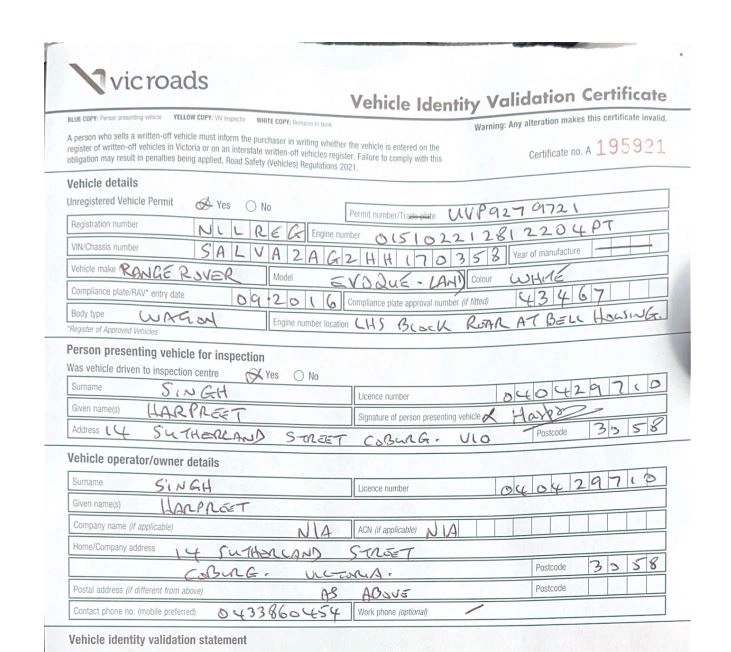 vicroads
Vehicle Identity Validation Certificate
BLUE COPY: Person presenting vehicle YELLOW COPY: VIV Inspector WHITE COPY: Remains in book
Warning: Any alteration makes this certificate invalid.
A person who sells a written-off vehicle must inform the purchaser in writing whether the vehicle is entered on the
register of written-off vehicles in Victoria or on an interstate written-off vehicles register. Failure to comply with this
obligation may result in penalties being applied. Road Safety (Vehicles) Regulations 2021.
Certificate no. A 195921
Vehicle details
Unregistered Vehicle Permit Yes No Permit number/Trade plate UVP9279721
Registration number NILREG Engine number 01510221281 2204PT
VIN/Chassis number SALVA2AG2HH170358 Year of manufacture
Vehicle make RANGE ROVER Model EVOQUE - LAND Colour WHITE
Compliance plate/RAV* entry date 09 2016 Compliance plate approval number (if fitted) 43467
Body type WAGON Engine number location LHS BLOCK REAR AT BELL HOUSING.
*Register of Approved Vehicles
Person presenting vehicle for inspection
Was vehicle driven to inspection centre Yes No
Surname SINGH Licence number 040429710
Given name(s) HARPREET Signature of person presenting vehicle
Address 14 SUTHERLAND STREET COBURG. VIC Postcode 3058
Vehicle operator/owner details
Surname SINGH Licence number 040429710
Given name(s) HARPREET
Company name (if applicable) N/A ACN (if applicable) N/A
Home/Company address 14 SUTHERLAND STREET
COBURG. VICTORIA. Postcode 3058
Postal address (if different from above) AS ABOVE Postcode
Contact phone no. (mobile preferred) 0433860454 Work phone (optional)
Vehicle identity validation statement